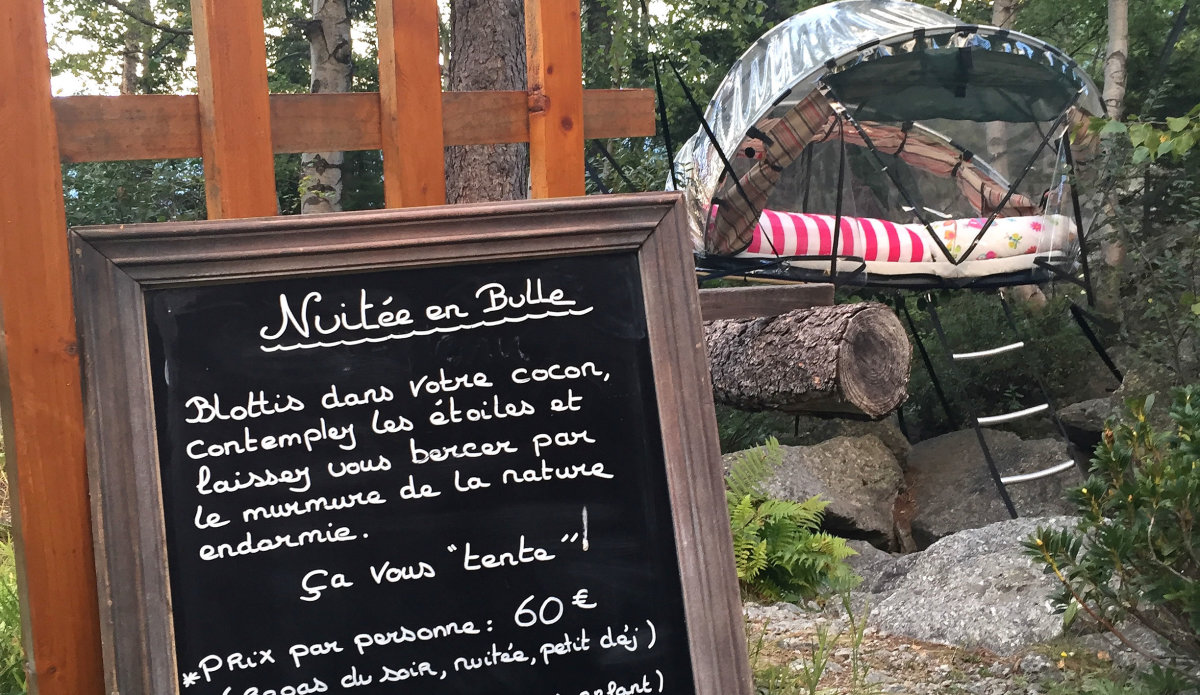 Nuitée en Bulle
Blottis dans votre cocon,
contemplez les étoiles et
laissez vous bercer par
le murmure de la nature
endormie.
Ça vous "tente"!
*Prix par personne : 60 €
(Repas du soir, nuitée, petit déj)
enfant)